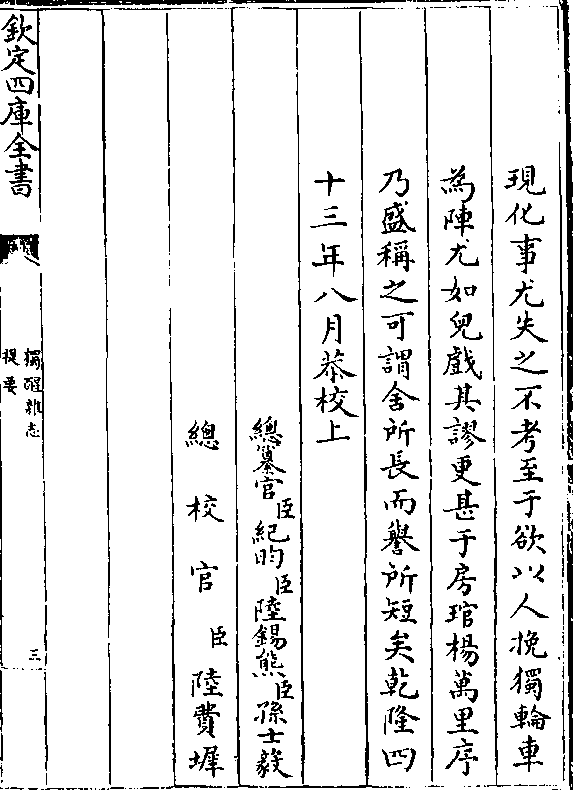 現化事尤失之不考至于欲以人挽獨輪車
為陣尤如兒戲其謬更甚于房琯楊萬里序
乃盛稱之可謂舍所長而譽所短矣乾隆四
十三年八月恭校上
總纂官臣紀昀臣陸錫熊臣孫士毅
總校官臣陸費墀
欽定四庫全書
獨醒雜志
提要
三